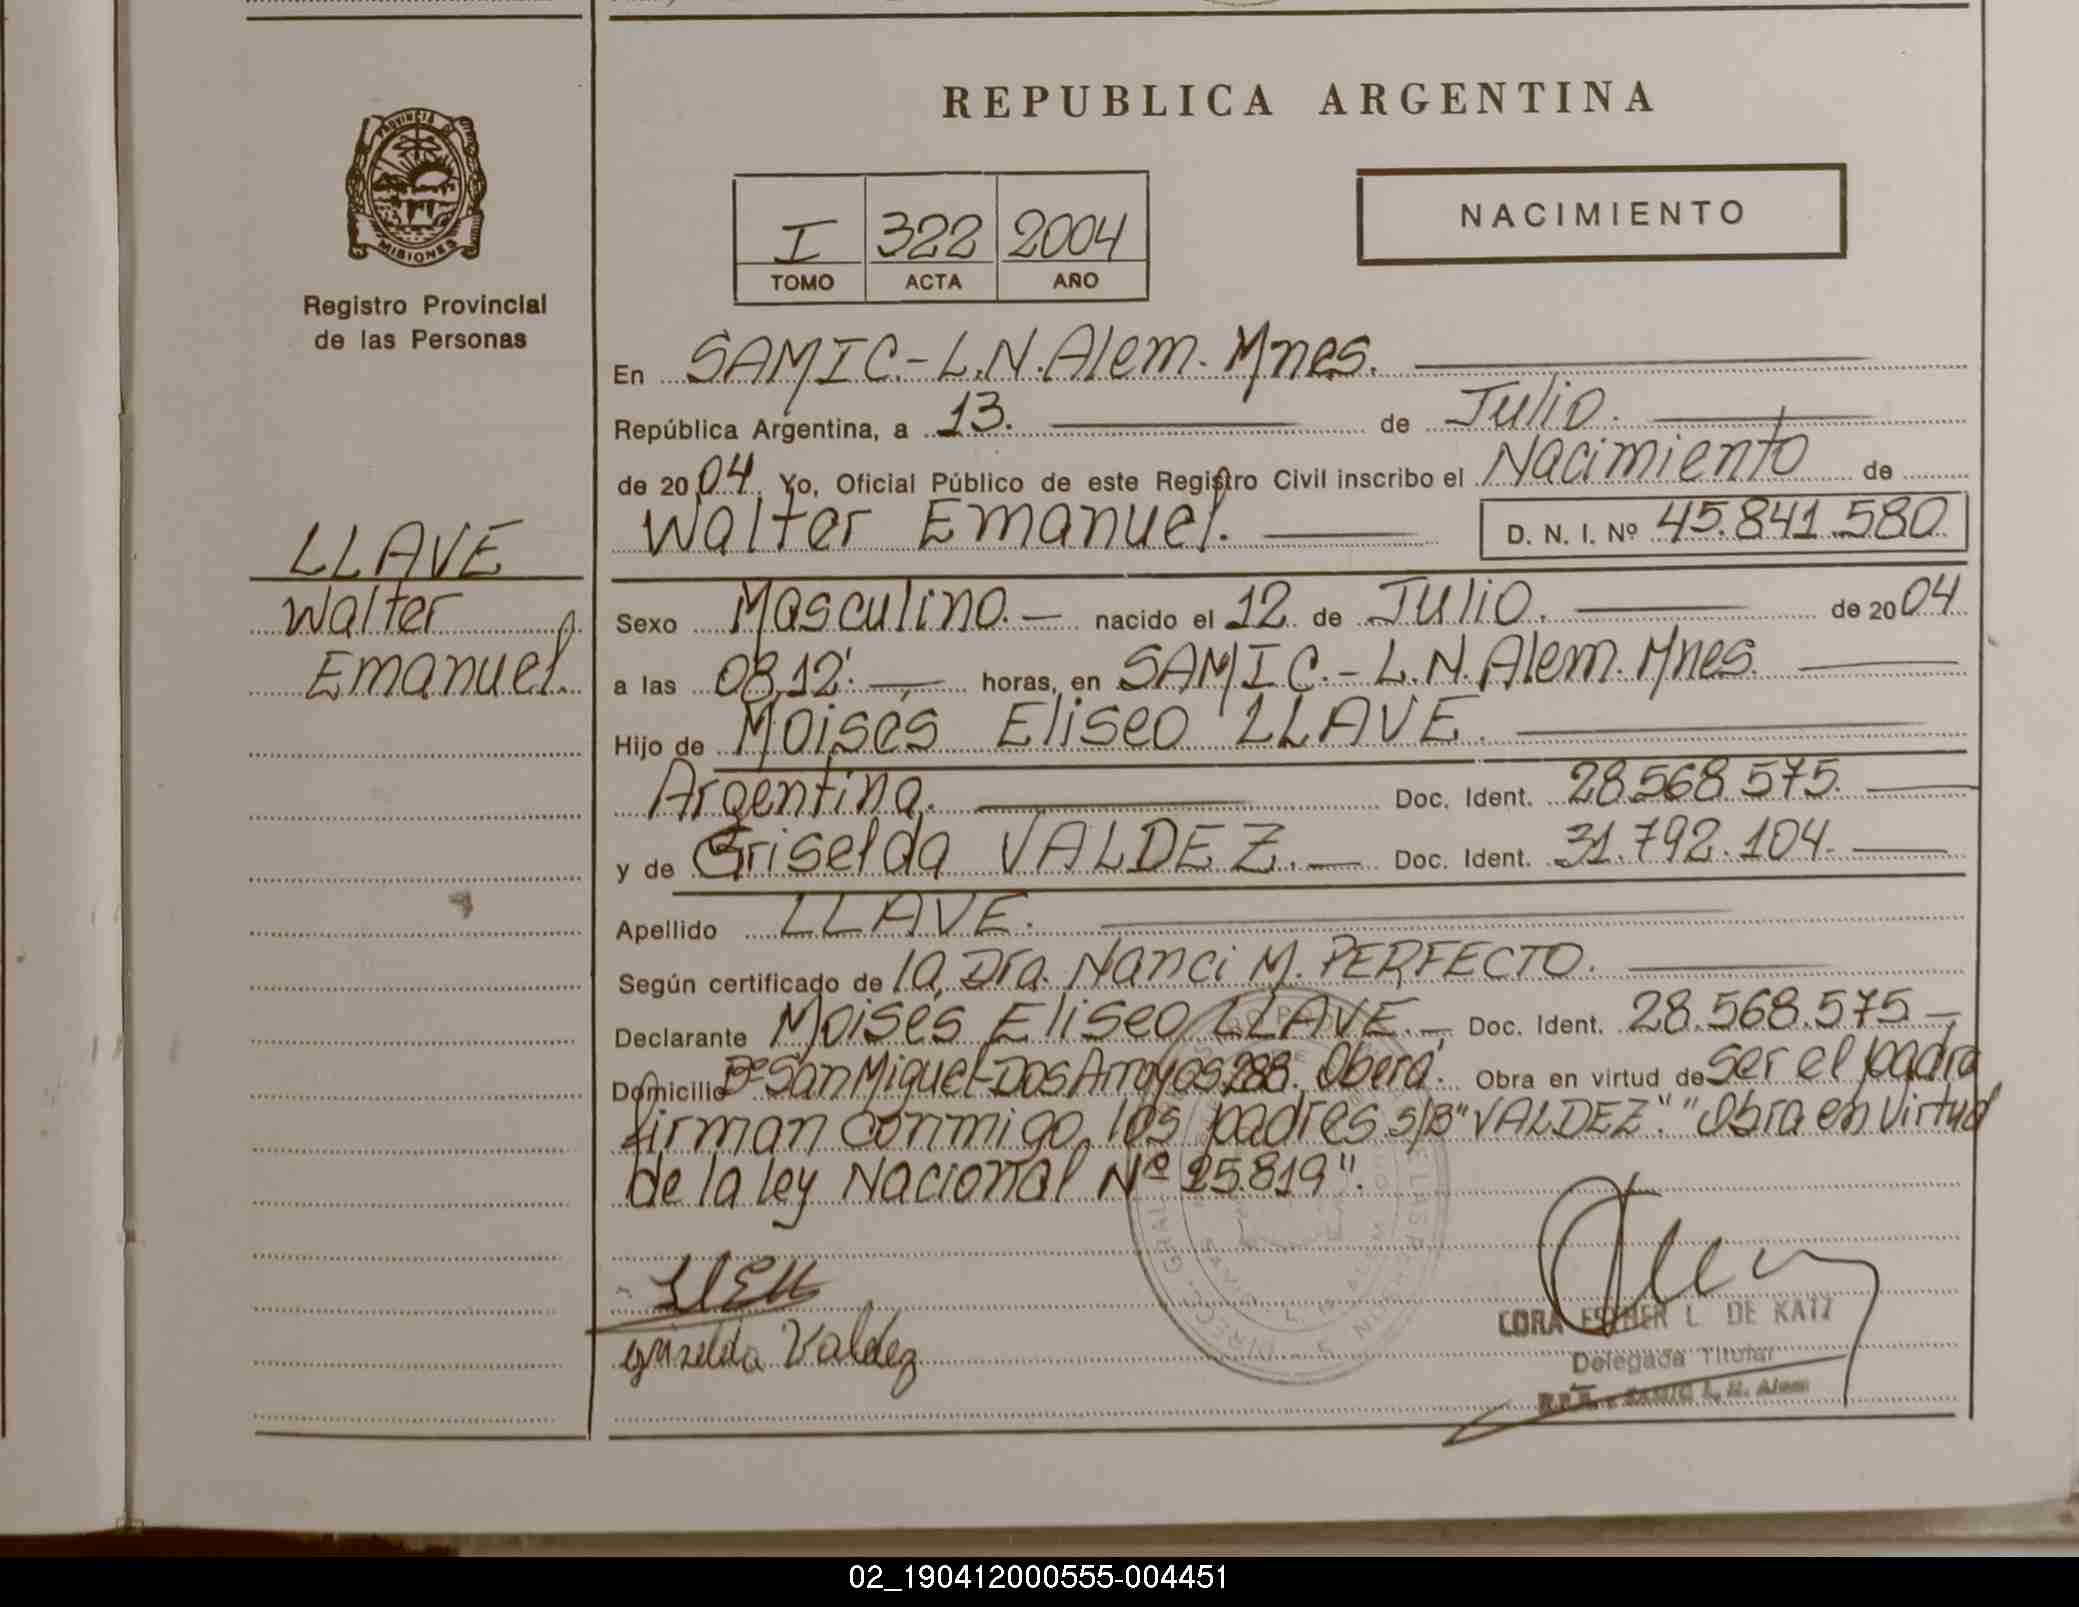 REPUBLICA ARGENTINA
PROVINCIA DE
MISIONES
Registro Provincial
de las Personas
I 322 2004
TOMO ACTA AÑO
NACIMIENTO
LLAVE
Walter
Emanuel.
En SAMIC.-L.N.Alem. Mnes.
República Argentina, a 13. de Julio.
de 2004. Yo, Oficial Público de este Registro Civil inscribo el Nacimiento de
Walter Emanuel. D. N. I. Nº 45.841.580.
Sexo Masculino.- nacido el 12 de Julio. de 2004
a las 08,12'. horas, en SAMIC.-L.N.Alem. Mnes.
Hijo de Moisés Eliseo LLAVE.
Argentina. Doc. Ident. 28.568.575.
y de Griselda VALDEZ.- Doc. Ident. 31.792.104.
Apellido LLAVE.
Según certificado de la Dra. Nanci M. PERFECTO.
Declarante Moisés Eliseo LLAVE.- Doc. Ident. 28.568.575-
Domicilio Bº San Miguel-Dos Arroyos 288. Oberá. Obra en virtud de ser el padre
firman conmigo los padres s/B "VALDEZ". "Obra en virtud
de la ley Nacional Nº 25.819".
Griselda Valdez
CORA ESTHER L. DE KATZ
Delegada Titular
R.P.P. - SAMIC L. N. Alem
02_190412000555-004451